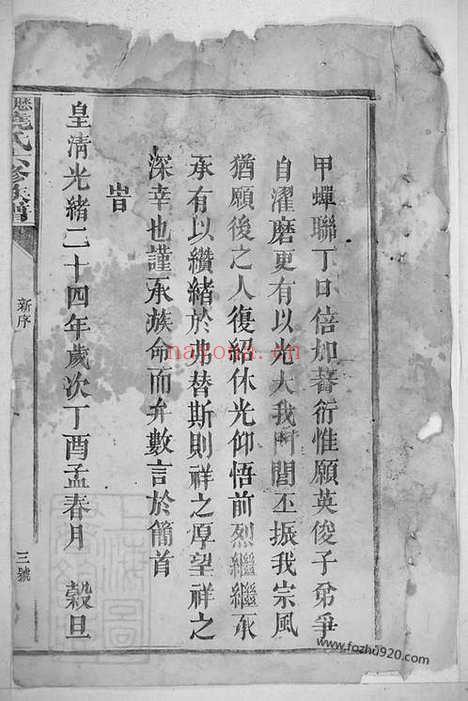 甲蟬聯丁口倍加蕃衍惟願英俊子弟爭
自濯磨更有以光大我門閭丕振我宗風
猶願後之人復紹休光仰悟前烈繼繼承
承有以纘緒於弗替斯則祥之厚望祥之
深幸也謹承族命而弁數言於簡首
旹
皇清光緒二十四年歲次丁酉孟春月　穀旦
氏六修族譜
新序
三號
nayona.cn
www.fozhu920.com